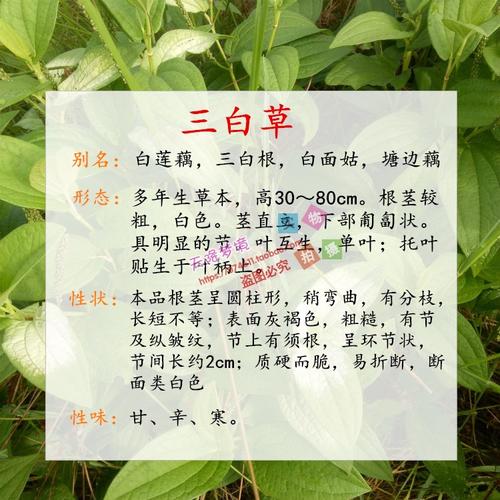 三白草
别名：白莲藕，三白根，白面姑，塘边藕
形态：多年生草本，高30～80cm。根茎较
粗，白色。茎直立，下部匍匐状。
具明显的节，叶互生，单叶；托叶
贴生于叶柄上。
实物
拍摄
盗图必究
性状：本品根茎呈圆柱形，稍弯曲，有分枝，
长短不等；表面灰褐色，粗糙，有节
及纵皱纹，节上有须根，呈环节状，
节间长约2cm；质硬而脆，易折断，断
面类白色
性味：甘、辛、寒。